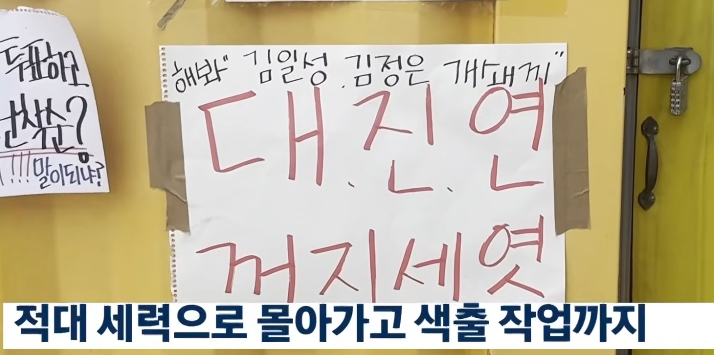 해봐" 김일성.김정은 개새끼"
대.진.연
꺼지세엿
두표하고
산책순?
!!! 말이되냐?
적대 세력으로 몰아가고 색출 작업까지